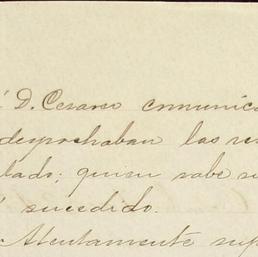 D. Cesareo comunica
despachaban las res
lado; quien sabe si
sucedido.
Atentamente sup